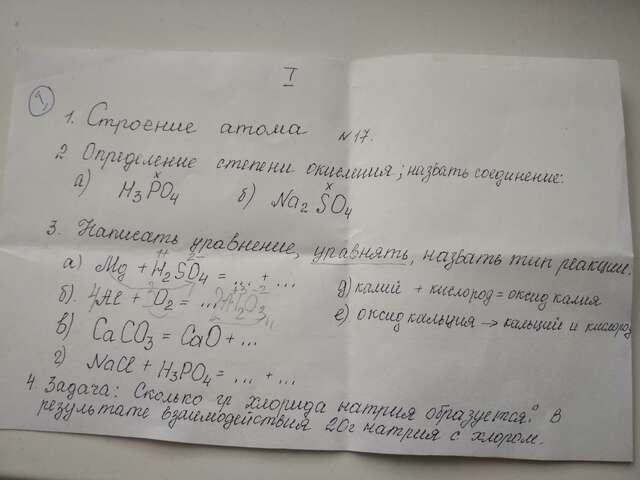 I
1,
1. Строение атома №17.
2 Определение степени окисления; назвать соединение:
а) H3PO4 б) Na2SO4
x x
3. Написать уравнение, уравнять, назвать тип реакции.
а) Mg + H2SO4 = ... + ...
б). 4Al + O2 = ... 2Al2O3
в) CaCO3 = CaO + ...
г) NaCl + H3PO4 = ... + ...
д) калий + кислород = оксид калия
е) оксид кальция → кальций и кислород
4 Задача: Сколько гр хлорида натрия образуется? В
результате взаимодействия 20г натрия с хлором.